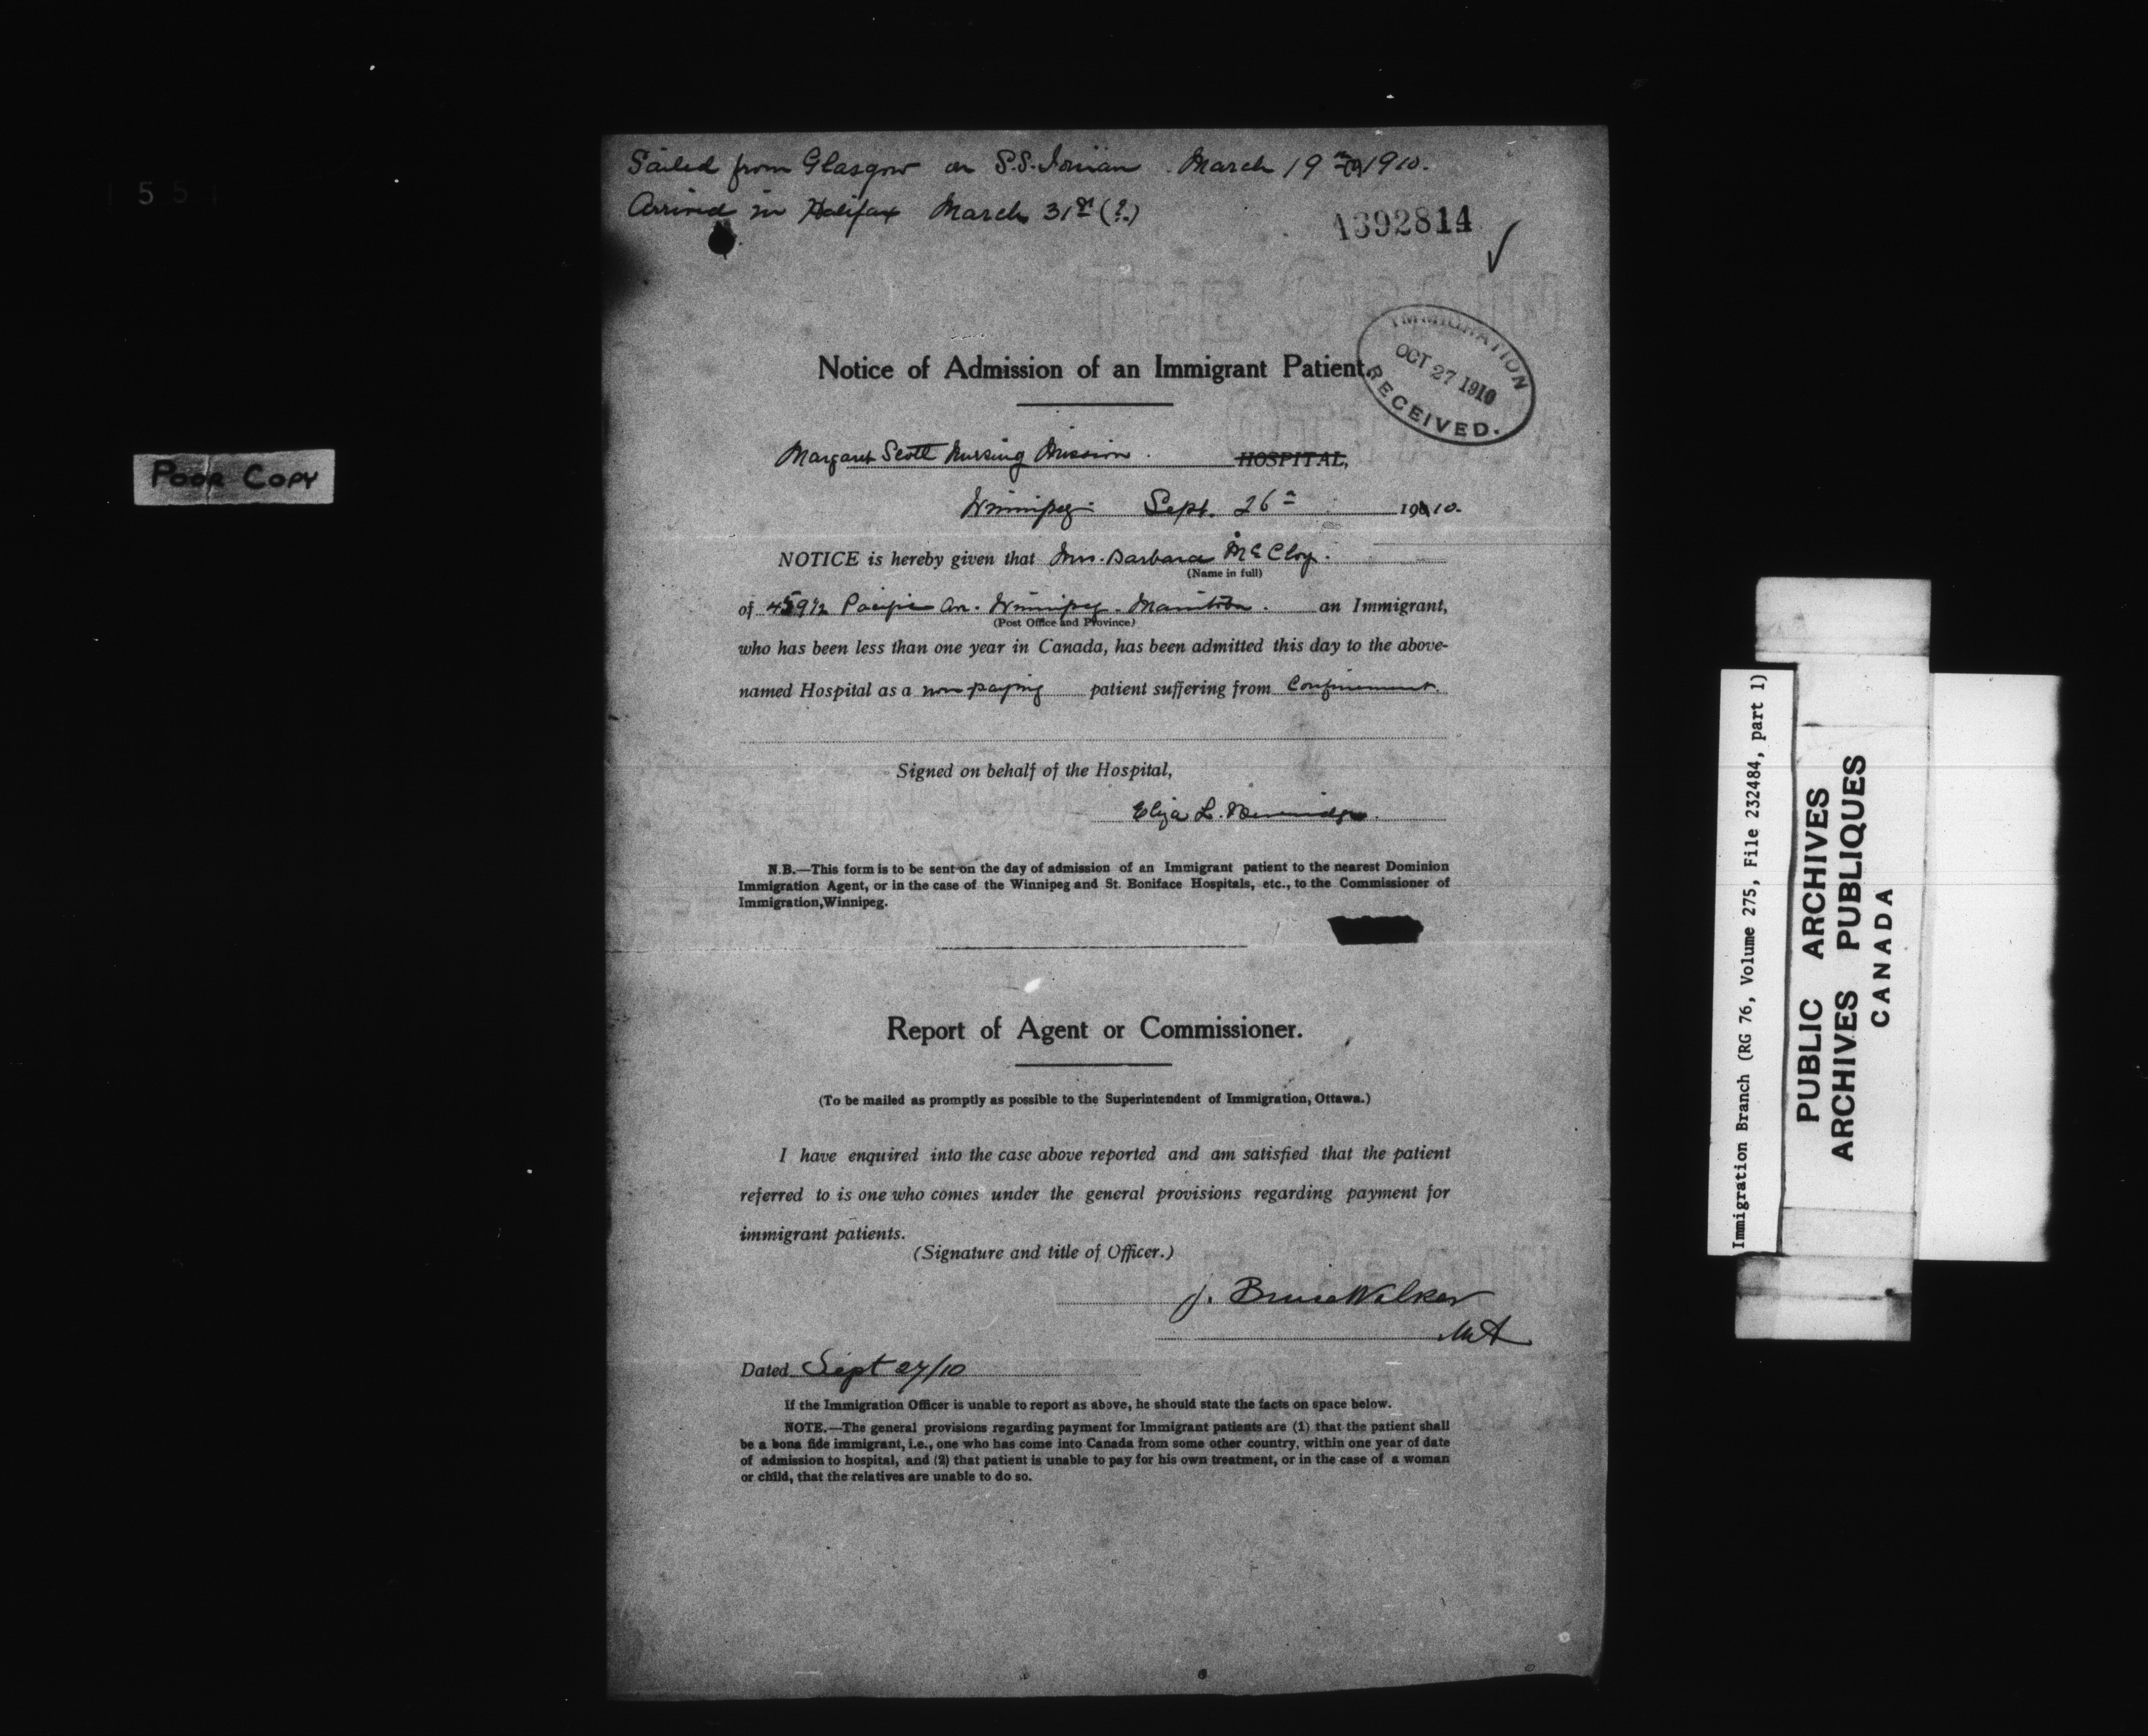 Sailed from Glasgow on S.S. Ionian. March 19th 1910.
Arrived in Halifax March 31st (?)
A392814
Notice of Admission of an Immigrant Patient.
IMMIGRATION
OCT 27 1910
RECEIVED.
Margaret Scott Nursing Mission. HOSPITAL,
Winnipeg. Sept. 26th 1910.
NOTICE is hereby given that Mrs. Barbara McCloy.
(Name in full)
of 459½ Pacific Av. Winnipeg. Manitoba. an Immigrant,
(Post Office and Province)
who has been less than one year in Canada, has been admitted this day to the above-
named Hospital as a non paying patient suffering from Confinement.
Signed on behalf of the Hospital,
Eliza L.
N.B.—This form is to be sent on the day of admission of an Immigrant patient to the nearest Dominion
Immigration Agent, or in the case of the Winnipeg and St. Boniface Hospitals, etc., to the Commissioner of
Immigration, Winnipeg.
Report of Agent or Commissioner.
(To be mailed as promptly as possible to the Superintendent of Immigration, Ottawa.)
I have enquired into the case above reported and am satisfied that the patient
referred to is one who comes under the general provisions regarding payment for
immigrant patients.
(Signature and title of Officer.)
J. Bruce Walker
Dated Sept 27/10
If the Immigration Officer is unable to report as above, he should state the facts on space below.
NOTE.—The general provisions regarding payment for Immigrant patients are (1) that the patient shall
be a bona fide immigrant, i.e., one who has come into Canada from some other country, within one year of date
of admission to hospital, and (2) that patient is unable to pay for his own treatment, or in the case of a woman
or child, that the relatives are unable to do so.
POOR COPY
Immigration Branch (RG 76, Volume 275, File 232484, part 1)
PUBLIC ARCHIVES
ARCHIVES PUBLIQUES
CANADA